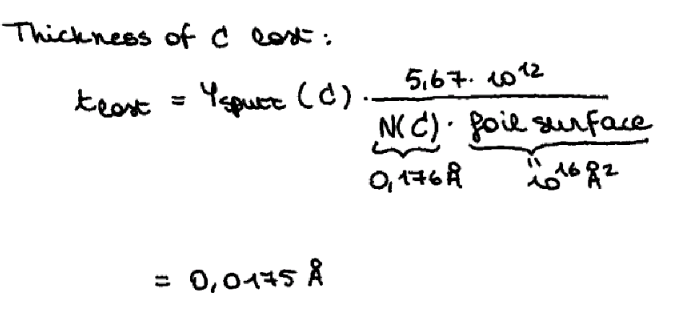 Thickness of C lost :
t_lost = Y_sputt (C) · 5,67 · 10^12 / N(C) · foil surface
0,176 Å   " 10^16 Å^2
= 0,0175 Å